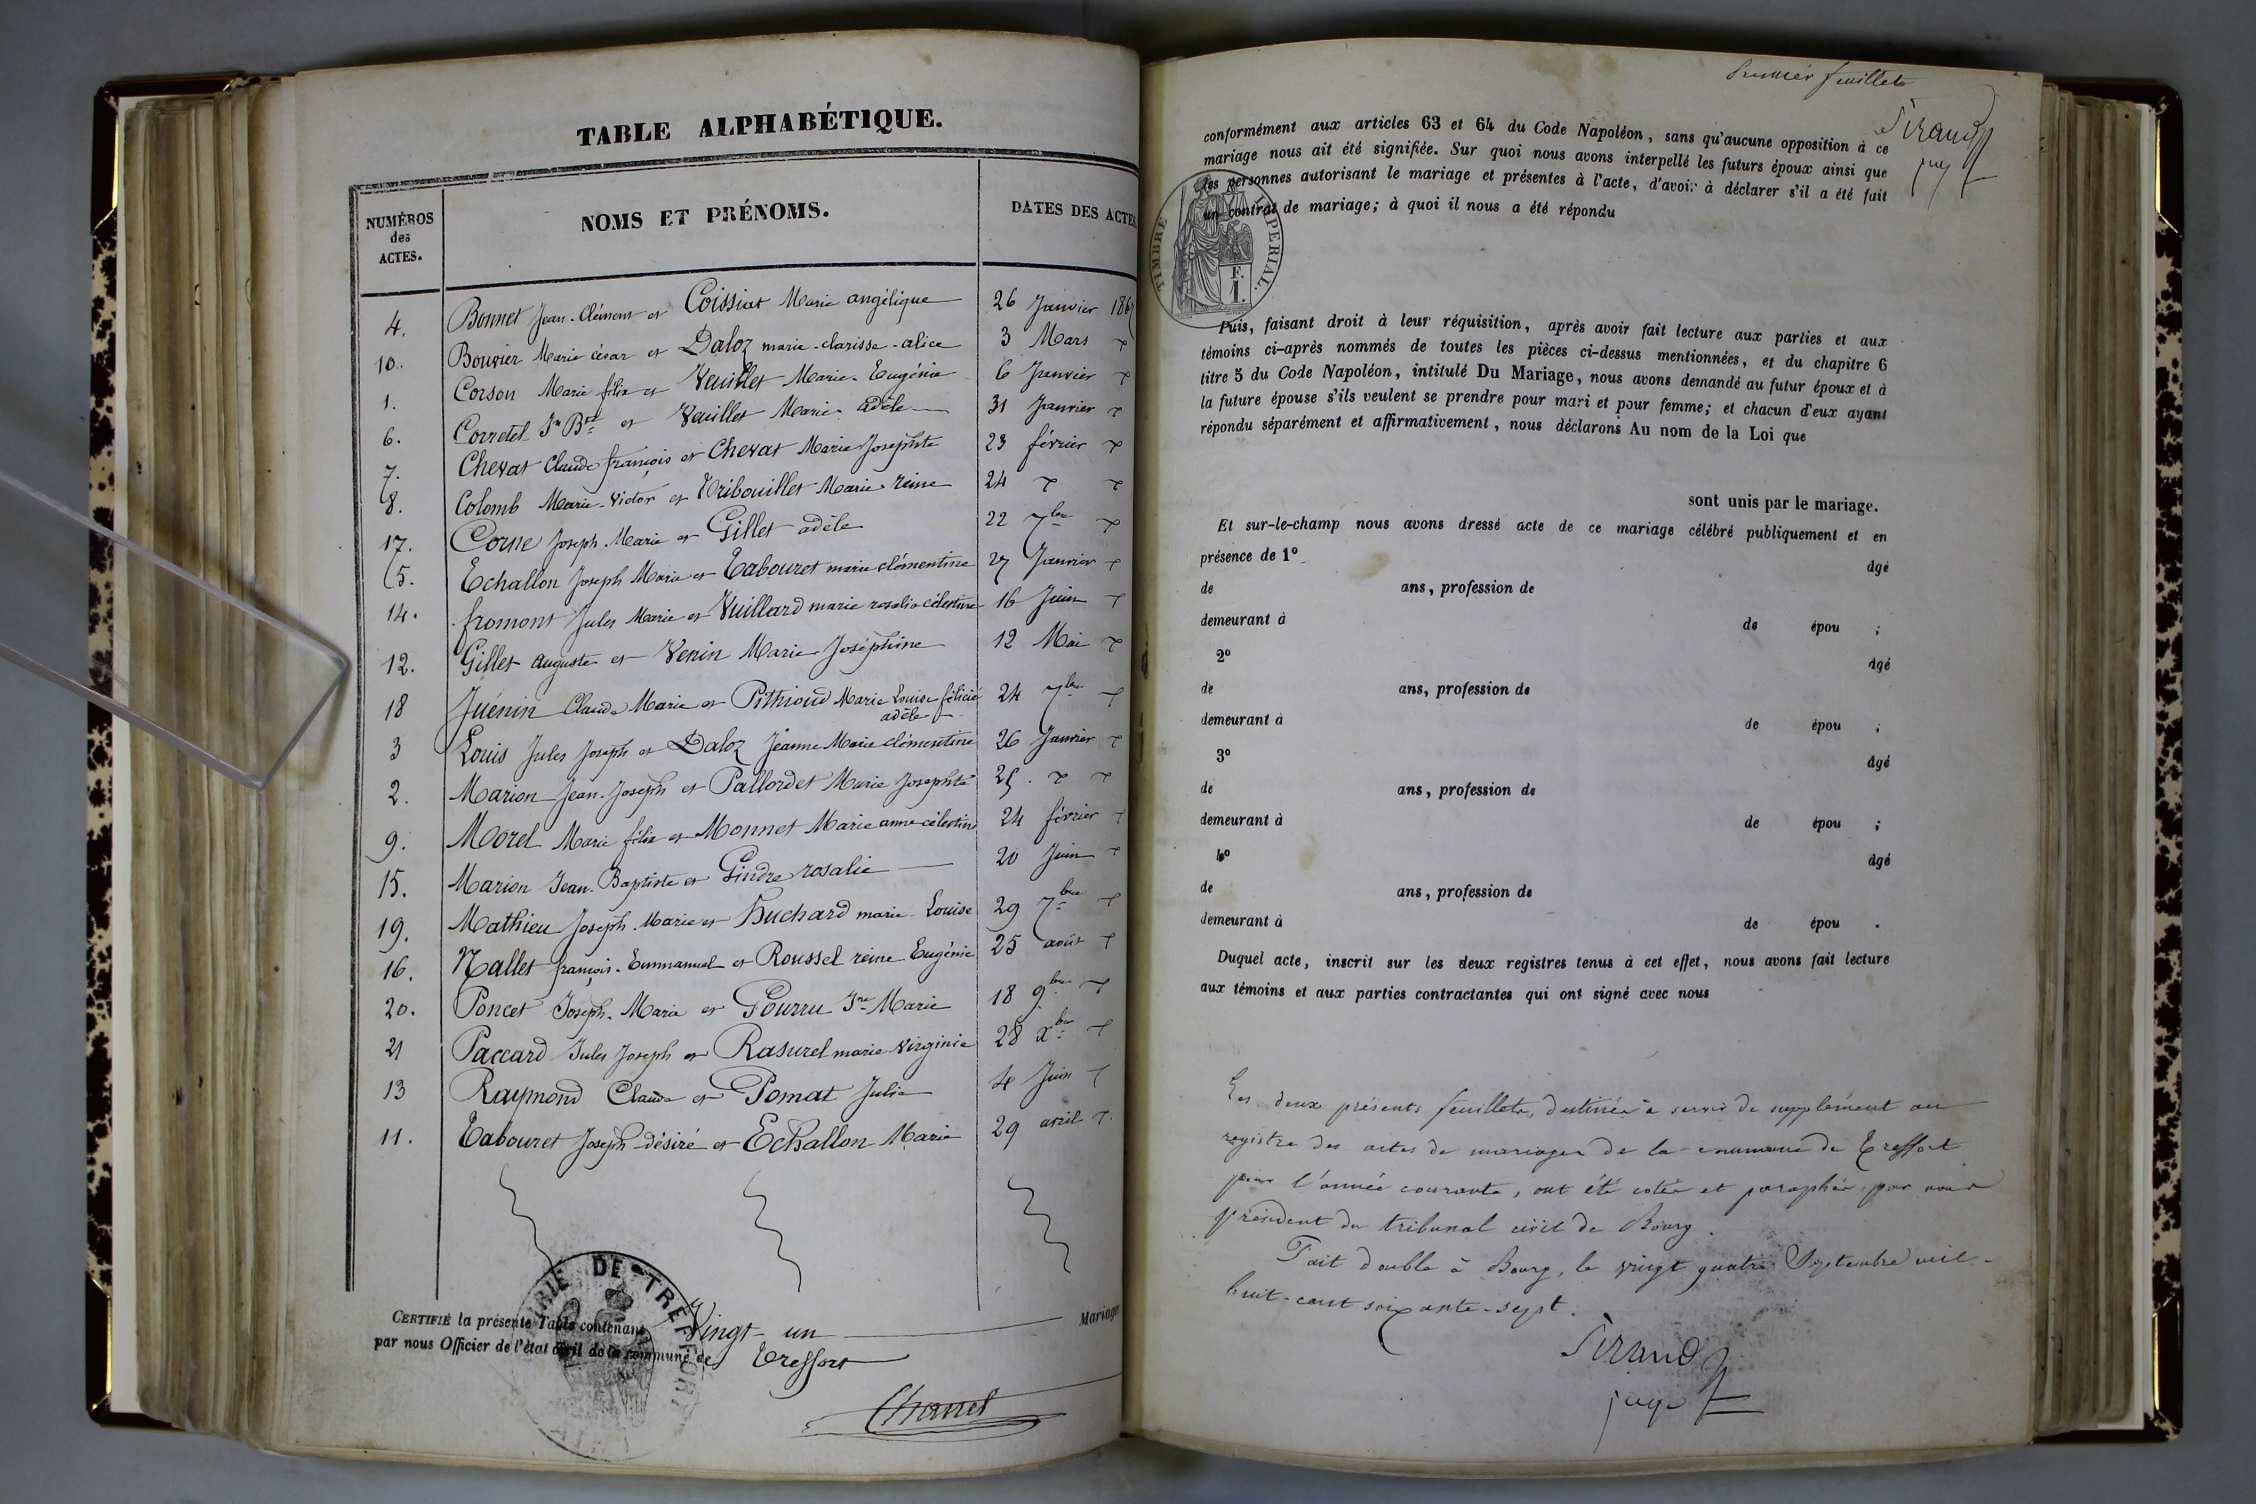 TABLE ALPHABÉTIQUE.
NUMÉROS des ACTES. NOMS ET PRÉNOMS. DATES DES ACTES
4. Bonnet Jean-Clément et Coissiat Marie angélique 26 Janvier 1867
10. Bouvier Marie césar et Daloz marie-clarisse-alice 3 Mars
1. Corson Marie félix et Veuillet Marie-Eugénie 6 Janvier
6. Corretel Jn Bte et Veuillet Marie adèle 31 Janvier
7. Chevat Claude françois et Chevat Marie Josephte 23 février
8. Colomb Marie-Victor et Tribouillet Marie-reine 24
17. Corne Joseph-Marie et Gillet adèle 22 7bre
5. Echallon Joseph Marie et Tabouret marie clémentine 27 Janvier
14. fromont Jules Marie et Vuillard marie rosalie célestine 16 Juin
12. Gillet auguste et Venin Marie Joséphine 12 Mai
18 Juénin Claude Marie et Pithioud Marie Louise félicie adèle 24 7bre
3 Louis Jules Joseph et Daloz Jeanne Marie clémentine 26 Janvier
2. Marion Jean-Joseph et Pallordet Marie Josephte 25
9. Morel Marie félix et Monnet Marie anne célestine 24 février
15. Marion Jean-Baptiste et Gindre rosalie 20 Juin
19. Mathieu Joseph-Marie et Buchard marie-Louise 29 7bre
16. Nallet françois-Emmanuel et Roussel reine Eugénie 25 août
20. Poncet Joseph-Marie et Gourru Jne Marie 18 9bre
21 Paccard Jules Joseph et Rasurel marie virginie 28 Xbre
13 Raymond Claude et Pomat Julie 4 Juin
11. Tabouret Joseph-désiré et Echallon Marie 29 avril
CERTIFIÉ la présente Table contenant Vingt-un Mariages
par nous Officier de l'état civil de la commune de Treffort
MAIRIE DE TREFFORT
(AIN)
Chanel
Premier feuillet
Sirand
juge
conformément aux articles 63 et 64 du Code Napoléon, sans qu'aucune opposition à ce
mariage nous ait été signifiée. Sur quoi nous avons interpellé les futurs époux ainsi que
les personnes autorisant le mariage et présentes à l'acte, d'avoir à déclarer s'il a été fait
un contrat de mariage; à quoi il nous a été répondu
TIMBRE IMPERIAL.
F.
1.
Puis, faisant droit à leur réquisition, après avoir fait lecture aux parties et aux
témoins ci-après nommés de toutes les pièces ci-dessus mentionnées, et du chapitre 6
titre 5 du Code Napoléon, intitulé Du Mariage, nous avons demandé au futur époux et à
la future épouse s'ils veulent se prendre pour mari et pour femme; et chacun d'eux ayant
répondu séparément et affirmativement, nous déclarons Au nom de la Loi que
sont unis par le mariage.
Et sur-le-champ nous avons dressé acte de ce mariage célébré publiquement et en
présence de 1° âgé
de ans, profession de
demeurant à de épou ;
2° âgé
de ans, profession de
demeurant à de épou ;
3° âgé
de ans, profession de
demeurant à de épou ;
4° âgé
de ans, profession de
demeurant à de épou .
Duquel acte, inscrit sur les deux registres tenus à cet effet, nous avons fait lecture
aux témoins et aux parties contractantes qui ont signé avec nous
Les deux présents feuillets, destinés à servir de supplément au
registre des actes de mariages de la commune de Treffort
pour l'année courante, ont été cotés et paraphés par nous
président du tribunal civil de Bourg.
Fait double à Bourg, le vingt quatre Septembre mil-
huit-cent soixante-sept.
Sirand
juge